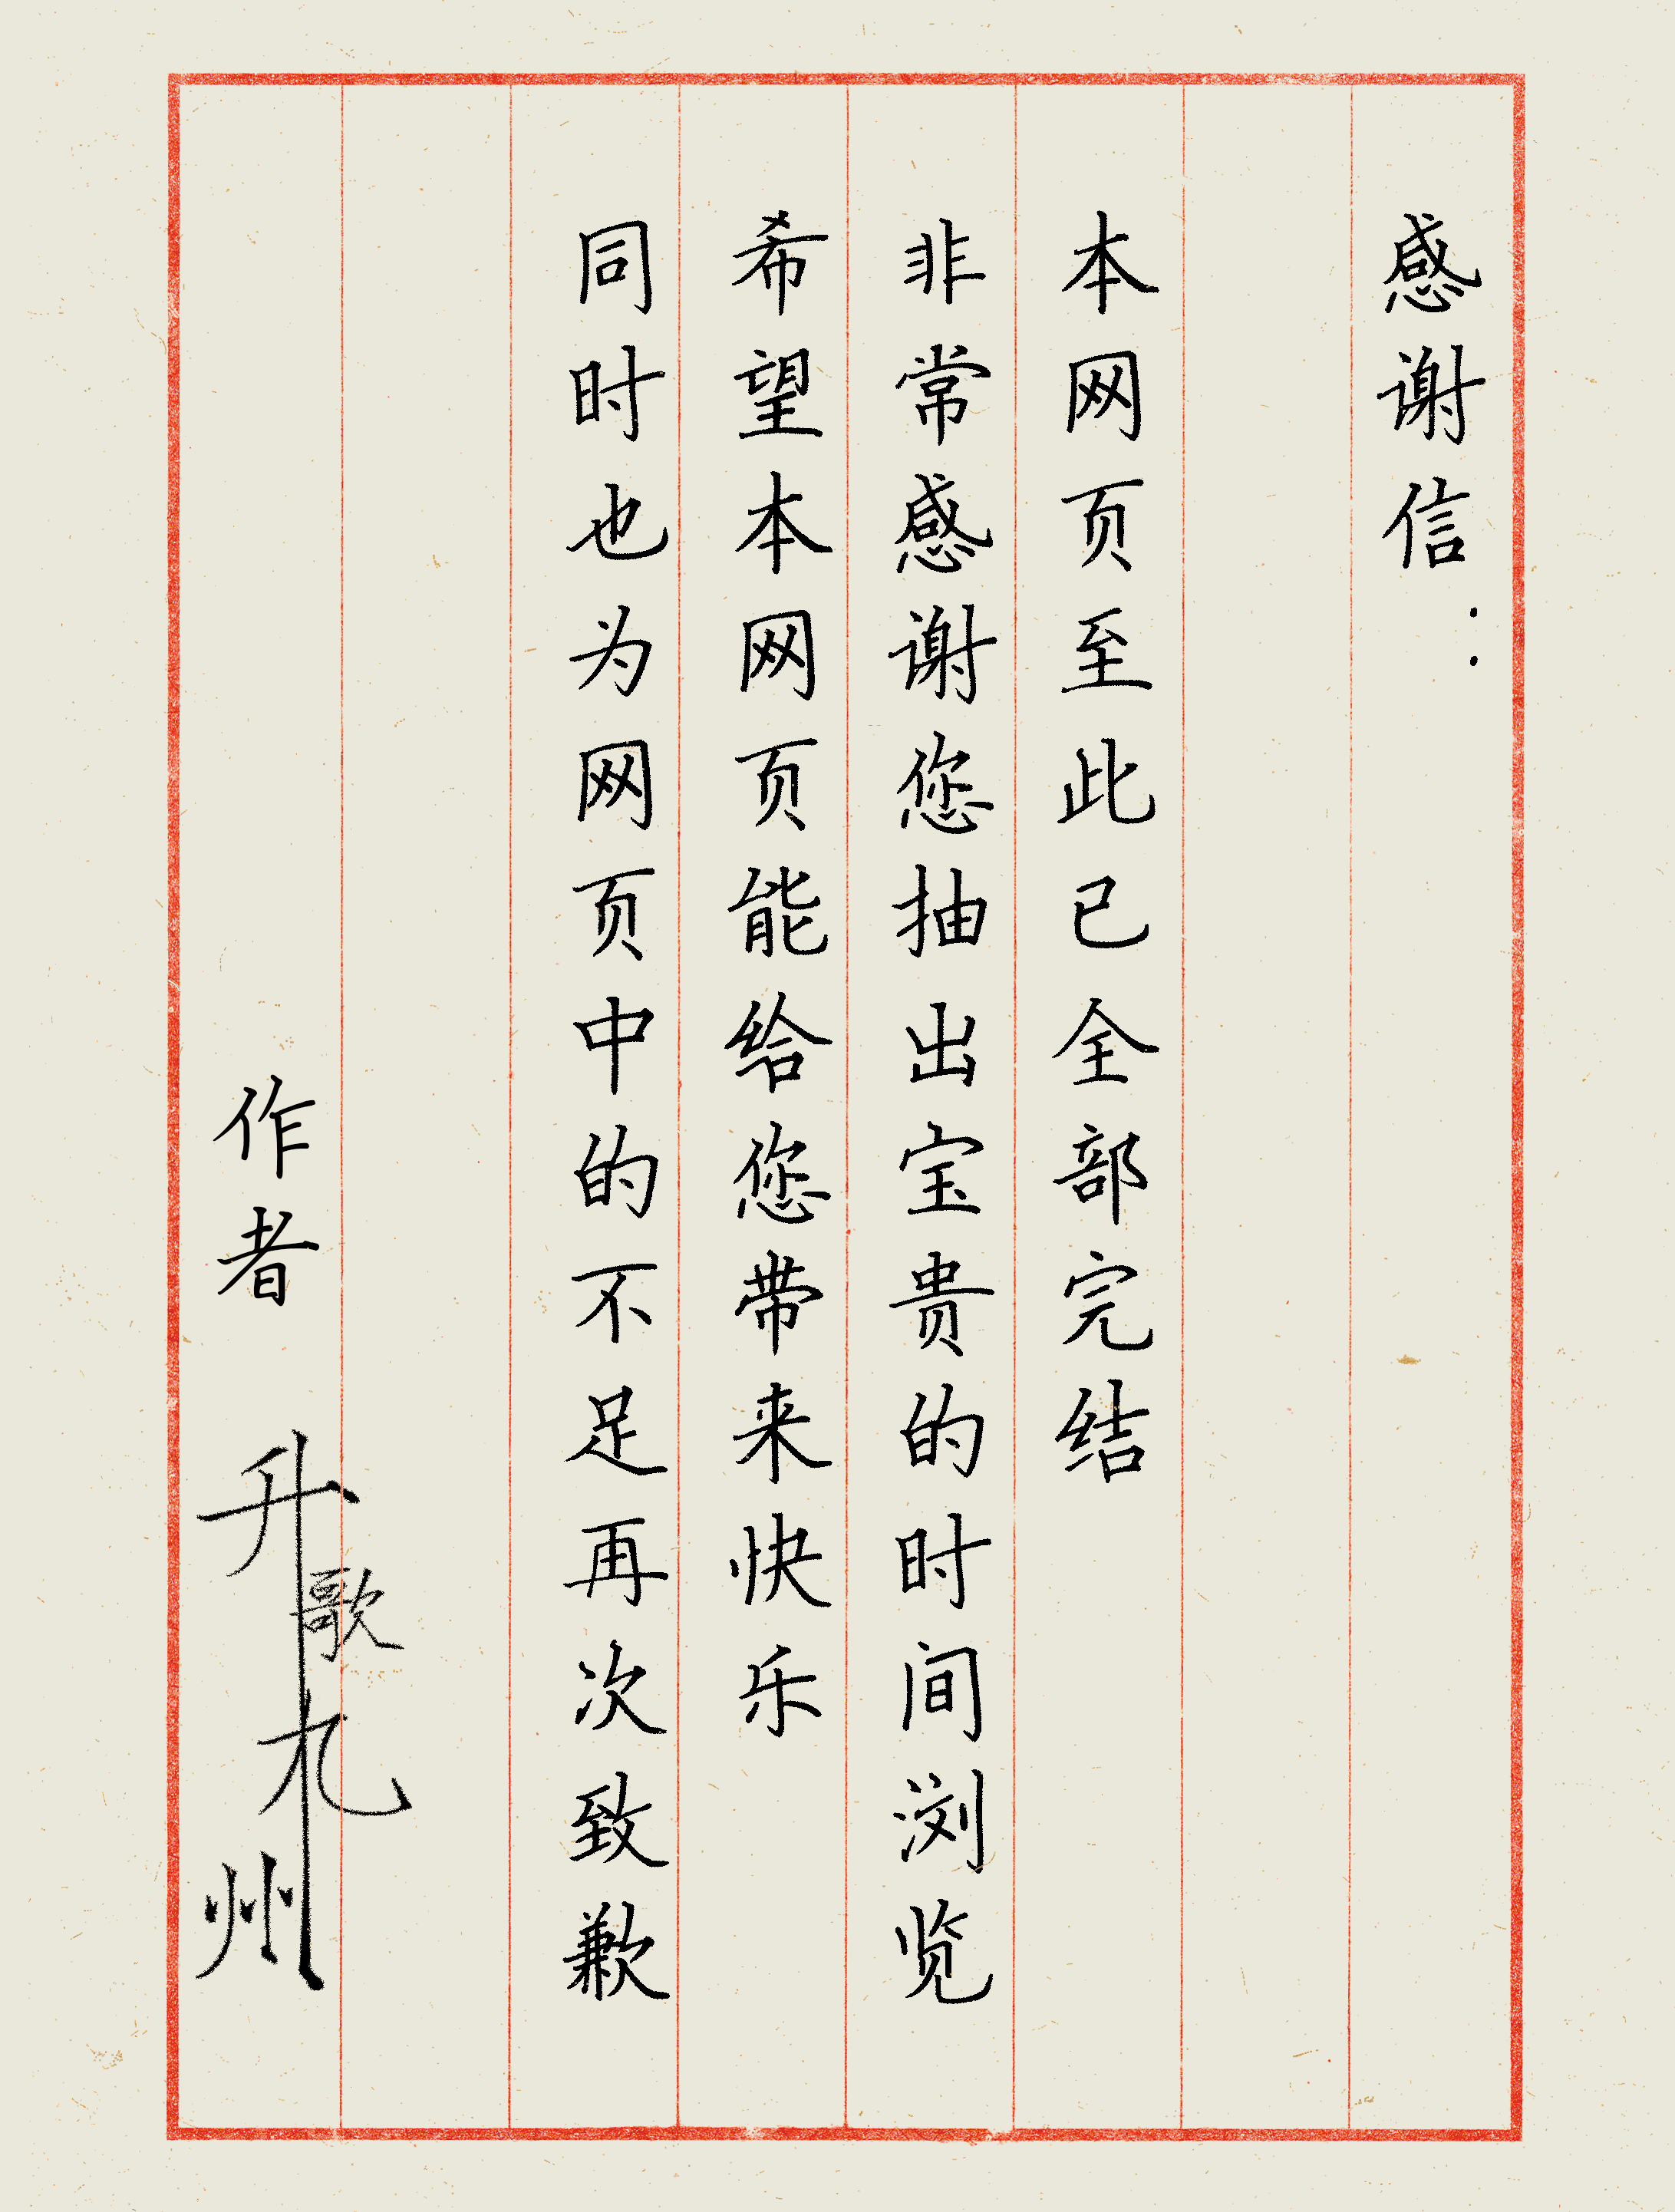 感谢信：
本网页至此已全部完结
非常感谢您抽出宝贵的时间浏览
希望本网页能给您带来快乐
同时也为网页中的不足再次致歉
作者 升歌九州